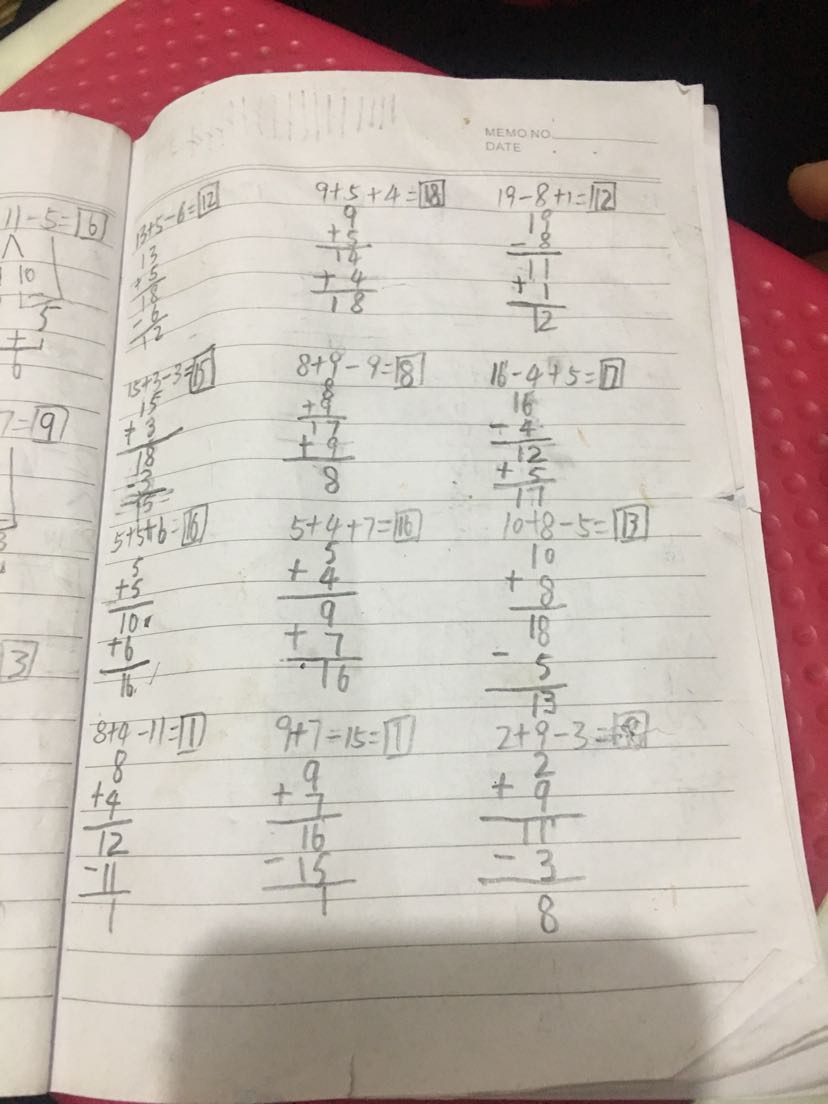 MEMO NO.
DATE
11-5=6
10
5
+1
6
7=9
3
13+5-6=12
13
+5
18
-6
12
9+5+4=18
9
+5
14
+4
18
19-8+1=12
19
-8
11
+1
12
15+3-3=15
15
+3
18
-3
15
8+9-9=8
8
+9
17
+9
8
16-4+5=17
16
-4
12
+5
17
5+5+6=16
5
+5
10
+6
16
5+4+7=16
5
+4
9
+7
16
10+8-5=13
10
+8
18
-5
13
8+4-11=1
8
+4
12
-11
1
9+7=15=1
9
+7
16
-15
1
2+9-3=8
2
+9
11
-3
8